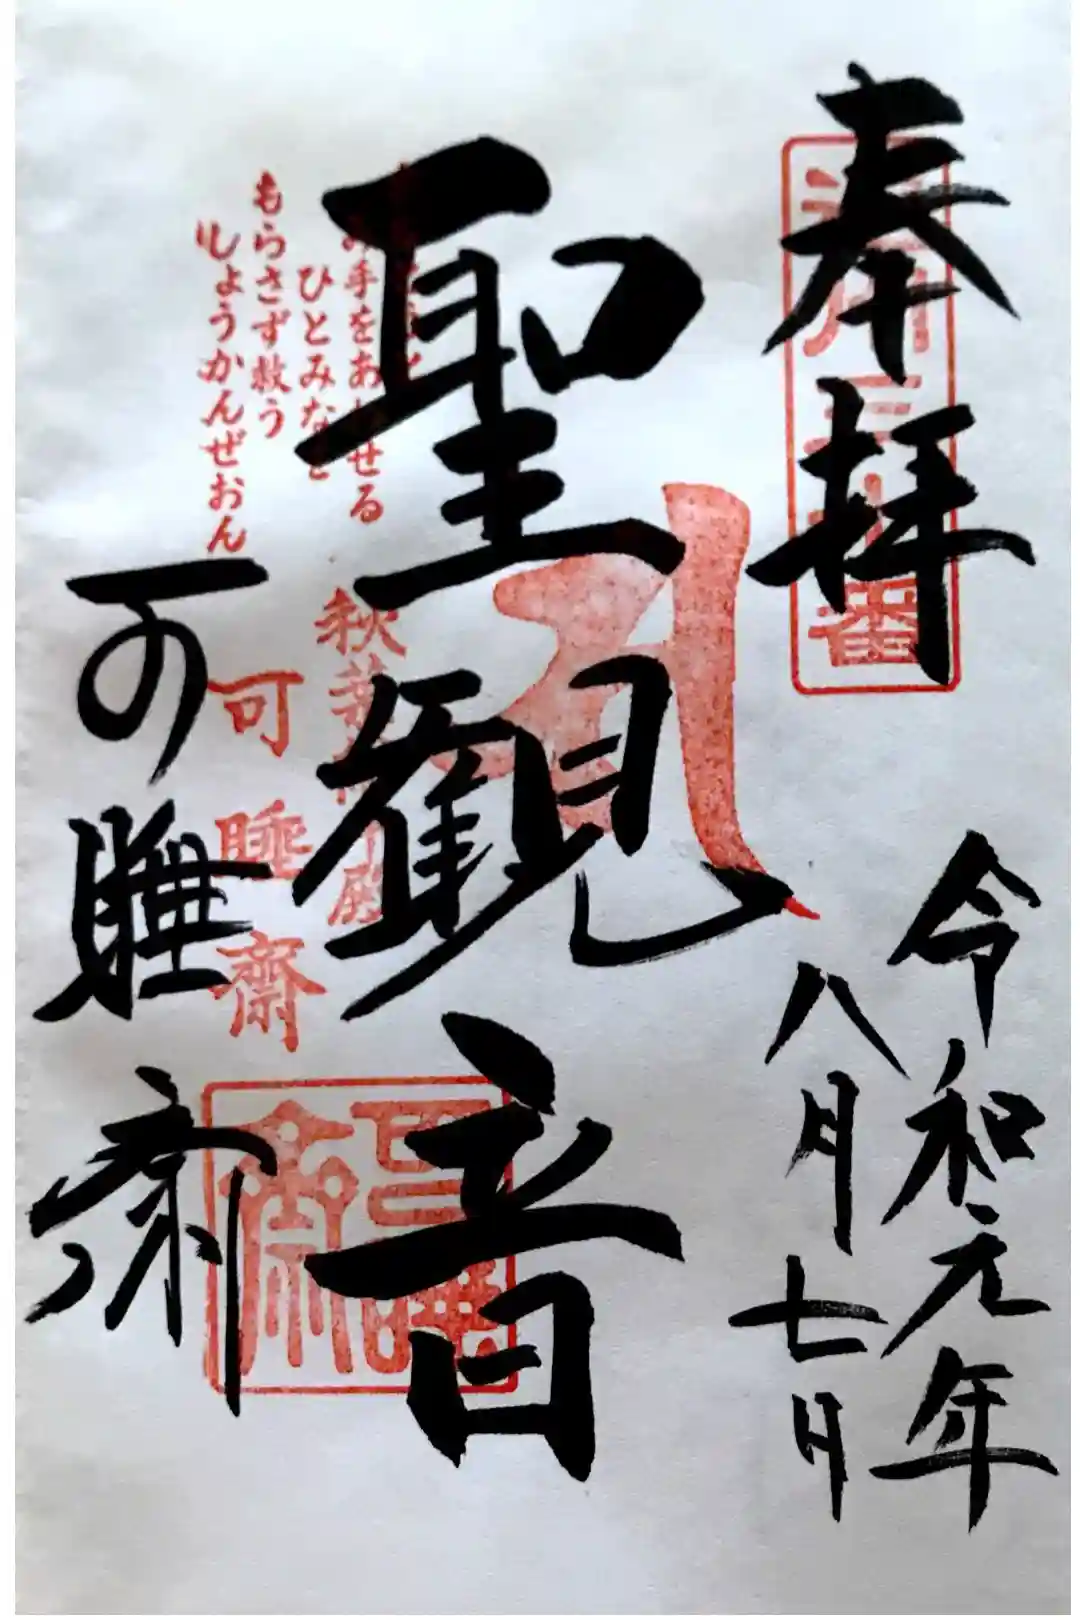 奉拝
令和元年
八月七日
聖観音
み手をあわせる
ひとみなと
もらさず救う
しょうかんぜおん
可睡斎
可睡齋